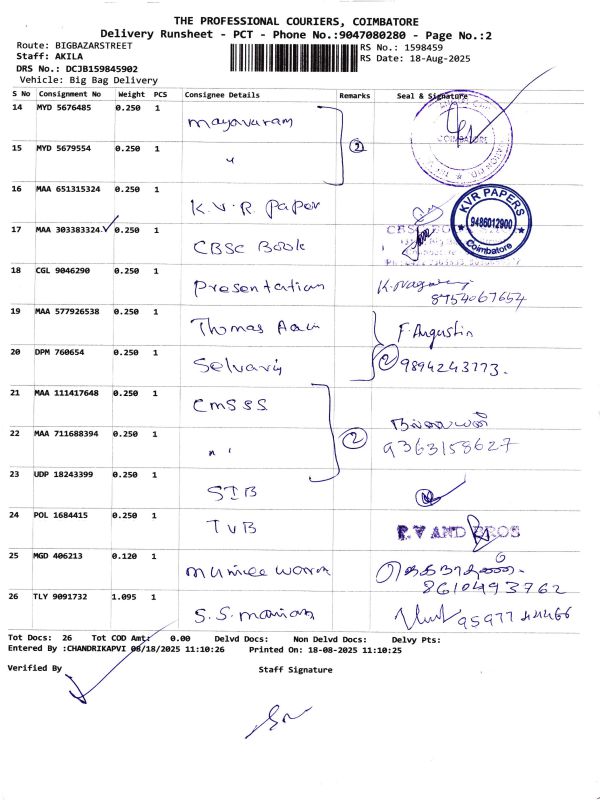 THE PROFESSIONAL COURIERS, COIMBATORE
Delivery Runsheet - PCT - Phone No.:9047080280 - Page No.:2
Route: BIGBAZARSTREET RS No.: 1598459
Staff: AKILA RS Date: 18-Aug-2025
DRS No.: DCJB159845902
Vehicle: Big Bag Delivery
S No Consignment No Weight PCS Consignee Details Remarks Seal & Signature
14 MYD 5676485 0.250 1 Mayavaram
COIMBATORE
15 MYD 5679554 0.250 1 " 2
16 MAA 651315324 0.250 1 K.V.R Paper
KVR PAPERS
9486012900
Coimbatore
17 MAA 303383324 0.250 1 CBSC Book
18 CGL 9046290 0.250 1 Presentation
8754067654
19 MAA 577926538 0.250 1 Thomas F. Augustin
20 DPM 760654 0.250 1 Selvaraj 2 9894243773.
21 MAA 111417648 0.250 1 CMSSS
22 MAA 711688394 0.250 1 " 2 9363158627
23 UDP 18243399 0.250 1 STB
24 POL 1684415 0.250 1 TVB
P.V AND BROS
25 MGD 406213 0.120 1
8610493762
26 TLY 9091732 1.095 1 S.S. Maniam 9597744466
Tot Docs: 26 Tot COD Amt: 0.00 Delvd Docs: Non Delvd Docs: Delvy Pts:
Entered By :CHANDRIKAPVI 08/18/2025 11:10:26 Printed On: 18-08-2025 11:10:25
Verified By Staff Signature